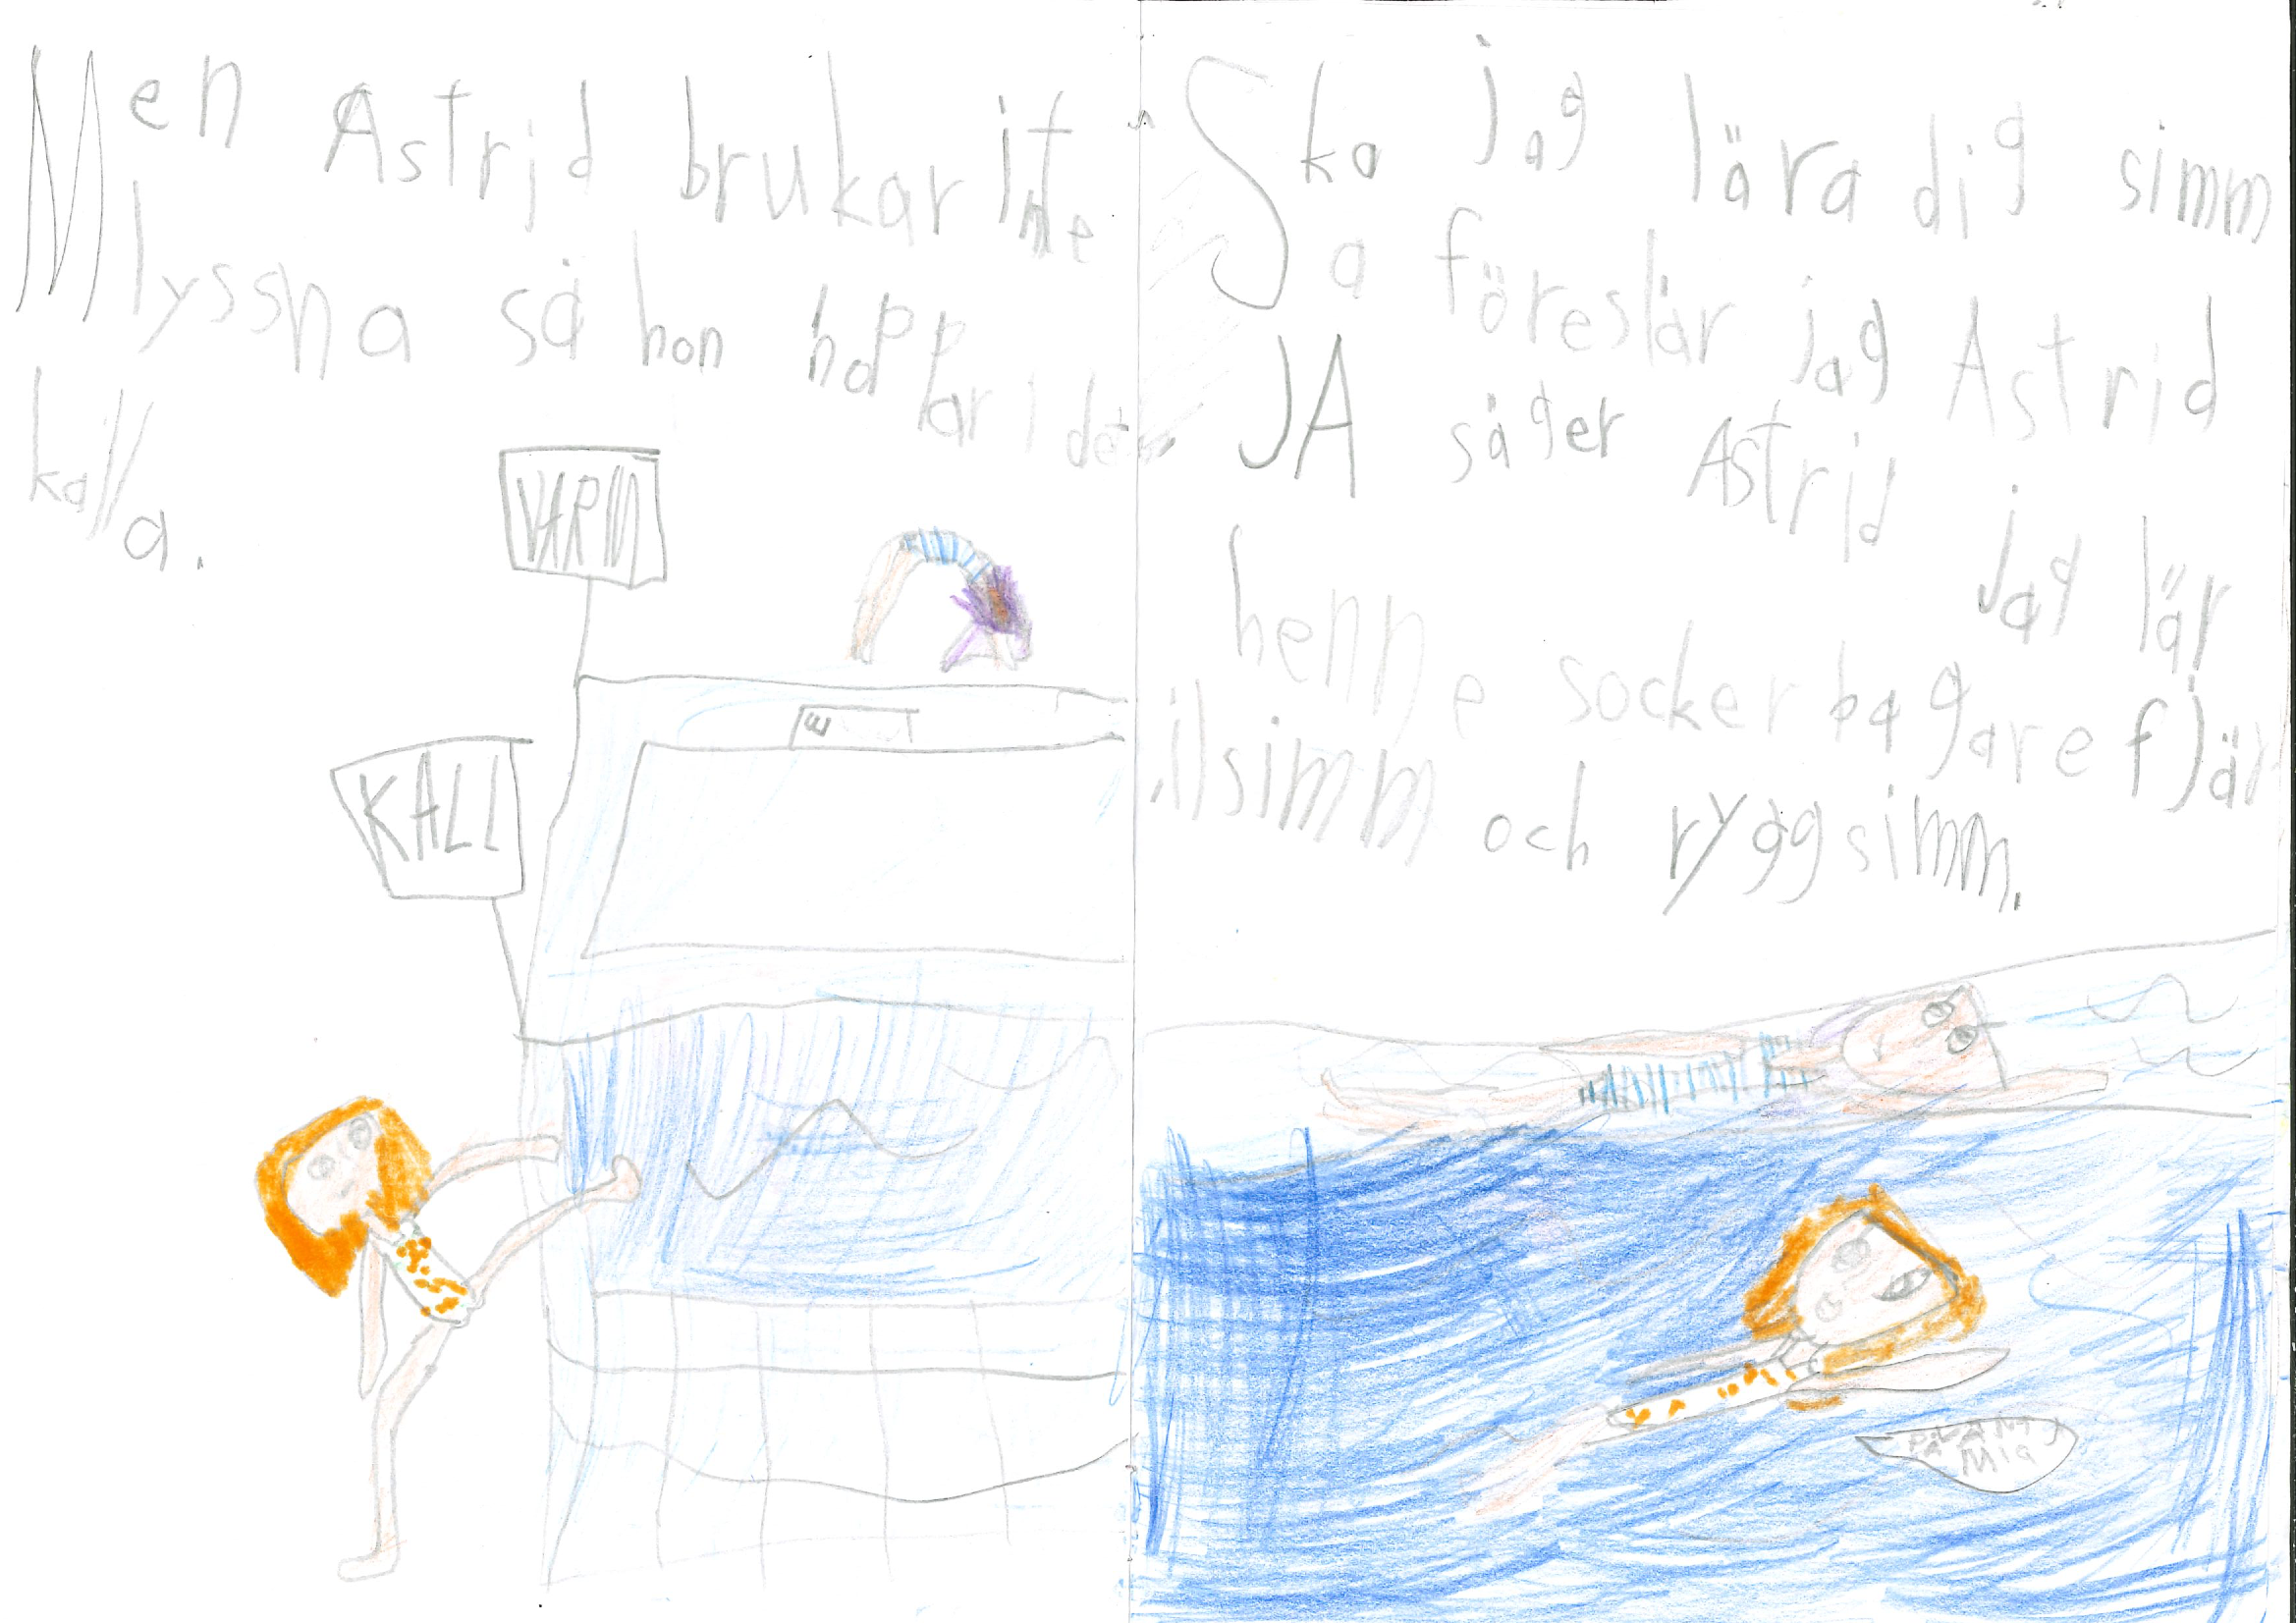 Men Astrid brukar inte
lyssna så hon hoppar i det
kalla.
VARM
KALL
Ska jag lära dig simm
a föreslår jag Astrid
JA säger Astrid jag lär
henne sockerbagare fjär
ilsimm och ryggsimm.
PÅ
MIG